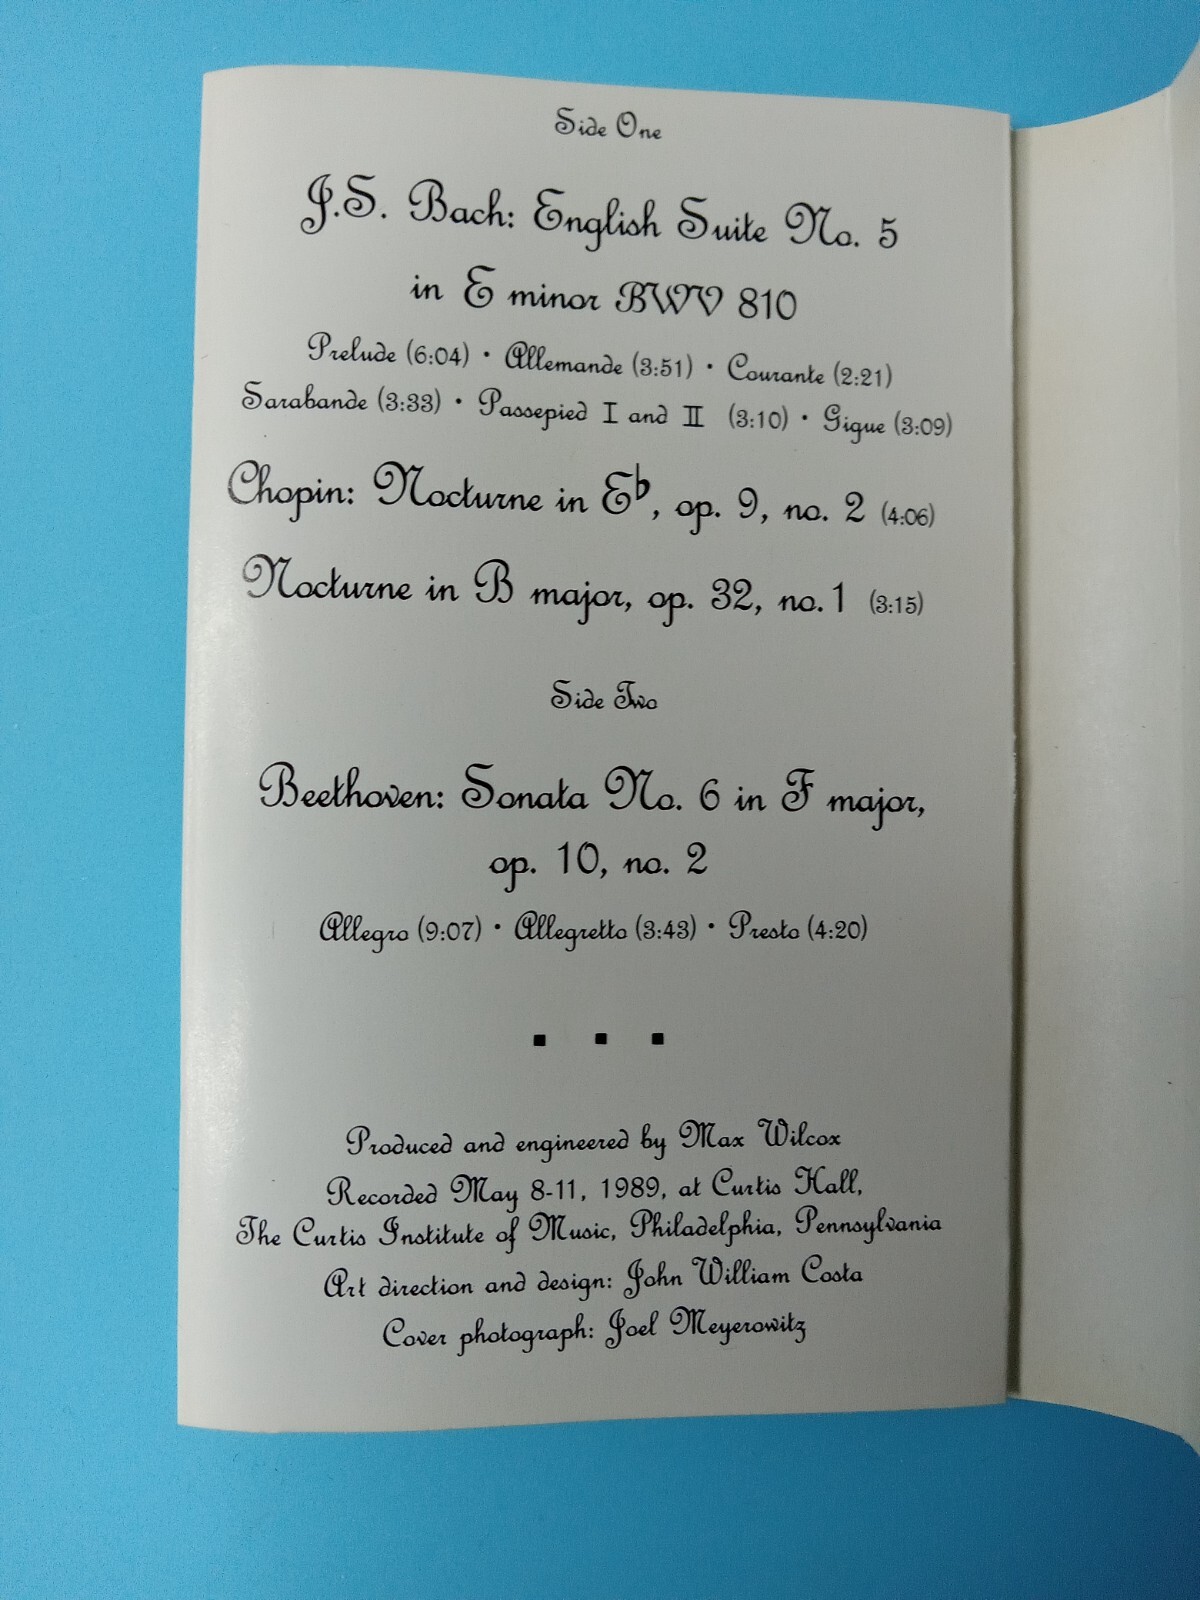 Side One
J.S. Bach: English Suite No. 5
in E minor BWV 810
Prelude (6:04) • Allemande (3:51) • Courante (2:21)
Sarabande (3:33) • Passepied I and II (3:10) • Gigue (3:09)
Chopin: Nocturne in E♭, op. 9, no. 2 (4:06)
Nocturne in B major, op. 32, no. 1 (3:15)
Side Two
Beethoven: Sonata No. 6 in F major,
op. 10, no. 2
Allegro (9:07) • Allegretto (3:43) • Presto (4:20)
Produced and engineered by Max Wilcox
Recorded May 8-11, 1989, at Curtis Hall,
The Curtis Institute of Music, Philadelphia, Pennsylvania
Art direction and design: John William Costa
Cover photograph: Joel Meyerowitz